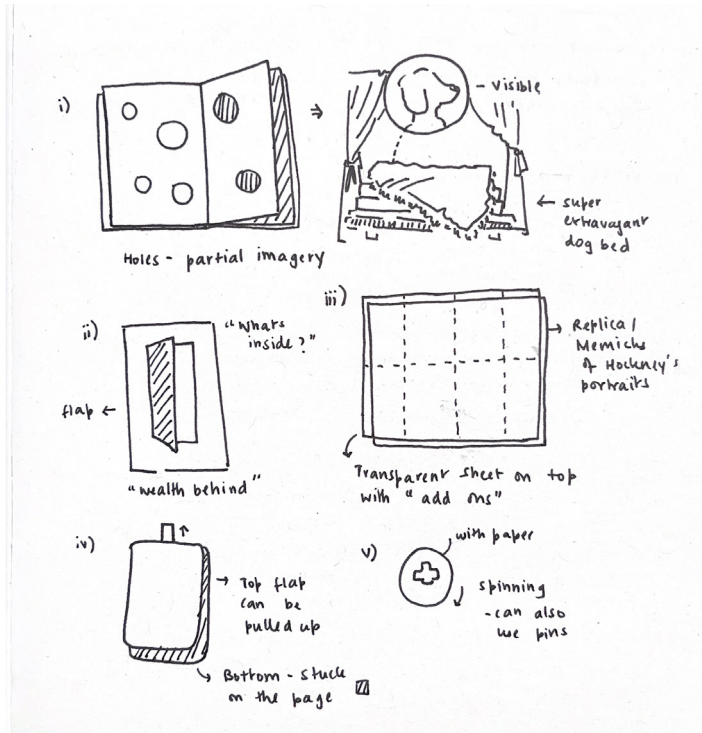 i)
- visible
⇒
← super
extravagant
dog bed
Holes - partial imagery
ii)
"Whats
inside?"
flap ←
"wealth behind"
iii)
→ Replica/
Memichs
of Hockney's
portraits
Transparent sheet on top
with "add ons"
iv)
→ Top flap
can be
pulled up
Bottom - stuck
on the page
v)
with paper
spinning
- can also
use pins